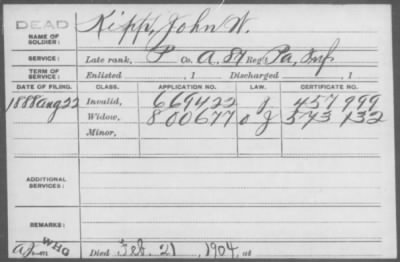 DEAD
NAME OF SOLDIER: Kipp, John W.
SERVICE: Late rank, P Co. A, 84 Reg't Pa, Inf.
TERM OF SERVICE: Enlisted , 1 Discharged , 1
DATE OF FILING. CLASS. APPLICATION NO. LAW. CERTIFICATE NO.
1888 Aug 22 Invalid, 669422 J 457999
Widow, 800677 O J 573132
Minor,
ADDITIONAL SERVICES:
REMARKS:
WHG
Died Feb. 21, 1904, at